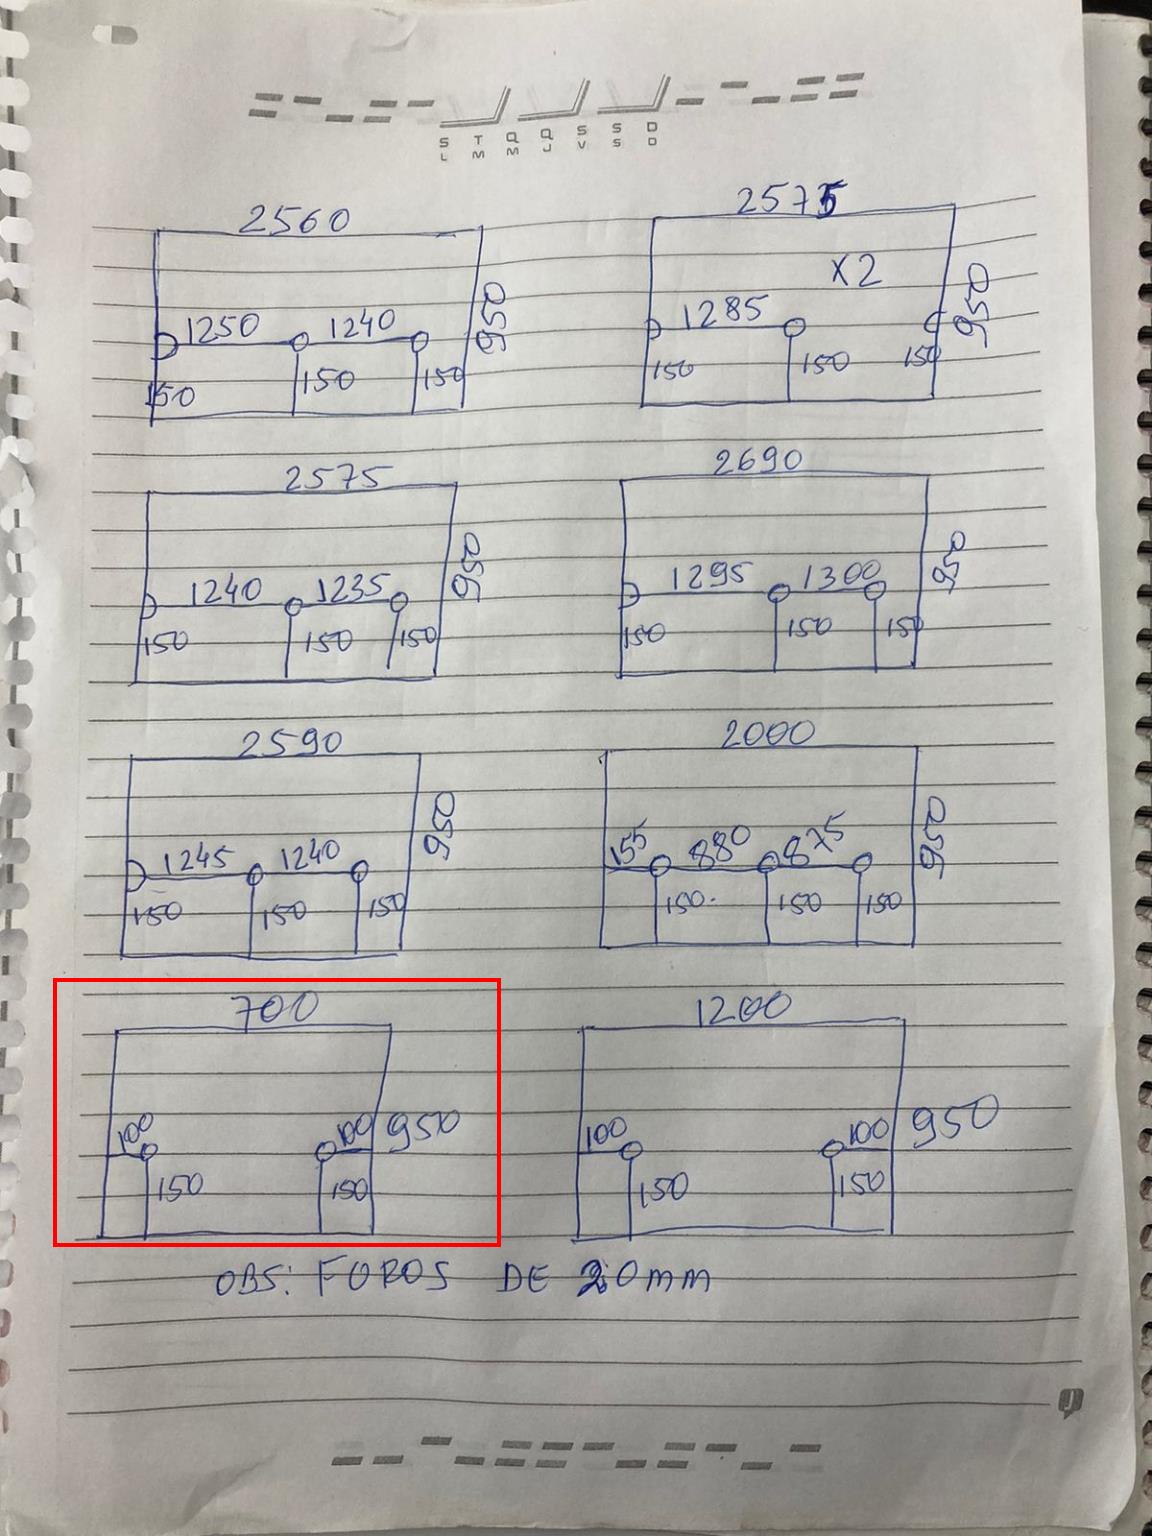 S T Q Q S S D
L M M J V S D
2560
1250 1240 950
150 150 150
2575
X2
1285 950
150 150 150
2575
1240 1235 950
150 150 150
2690
1295 1300 950
150 150 150
2590
1245 1240 950
150 150 150
2000
155 880 875 950
150. 150 150
700
100 100 950
150 150
1200
100 100 950
150 150
OBS: FUROS DE 20mm